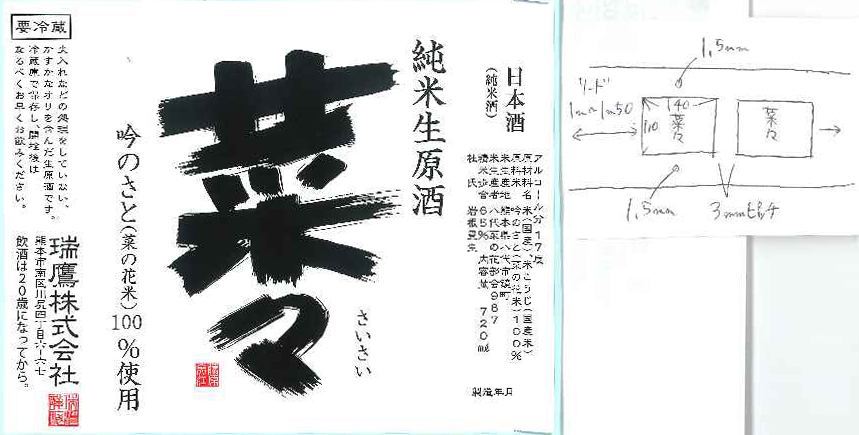 日本酒
(純米酒)
純米生原酒
アルコール分17度
原材料名 米(国産)、米こうじ(国産米)
原料米 吟のさと(菜の花米)100%
米生産地 熊本県八代市鏡町
米生産者 八代菜の花部会987
精米歩合 65% 内容量 720㎖
杜氏
製造年月
菜々
さいさい
吟のさと(菜の花米)100%使用
要冷蔵
火入れなどの処理をしていない、
かすかなオリを含んだ生原酒です。
冷蔵庫で保存し、開栓後は
なるべくお早くお飲みください。
瑞鷹株式会社
熊本市南区川尻四丁目六-六七
飲酒は20歳になってから。
1.5mm
リード
1m~1m50
140
110
菜々
菜々
1.5mm
3mmピッチ